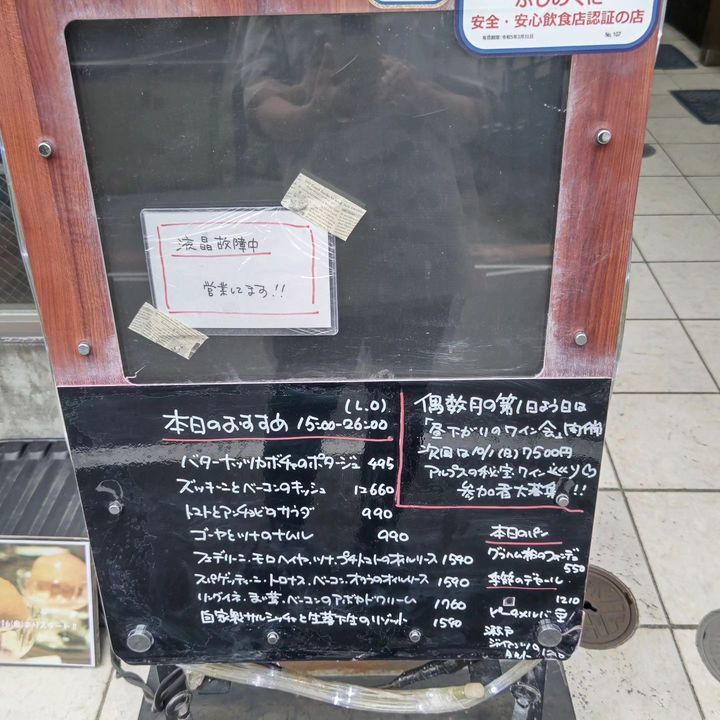 ふじのくに
安全・安心飲食店認証の店
有効期限:令和5年3月31日
No. 107
液晶故障中
営業してます!!
(L.O)
本日のおすすめ 15:00-26:00
バターナッツカボチャのポタージュ 495
ズッキーニとベーコンのキッシュ 1コ660
トマトとアンチョビのサラダ 990
ゴーヤとツナのナムル 990
フェデリーニ、モロヘイヤ、ツナ、プチトマトのオイルソース 1590
スパゲッティーニ・トロナス、ベーコン、オクラのオイルソース 1590
リングイネ、まい茸、ベーコンのアボカドクリーム 1760
自家製サルシッチャと生落下生のリゾット 1590
偶数月の第1日よう日は
「昼下がりのワイン会」開催
次回は 7500円
アルプスの秘宝ワイン巡り
参加者大募集!!
本日のパン
グラハム粉のフォンデュ
550
季節のデセール
1210
ピーチメルバ
瀬戸
ジャイアンツの
タルト 1210